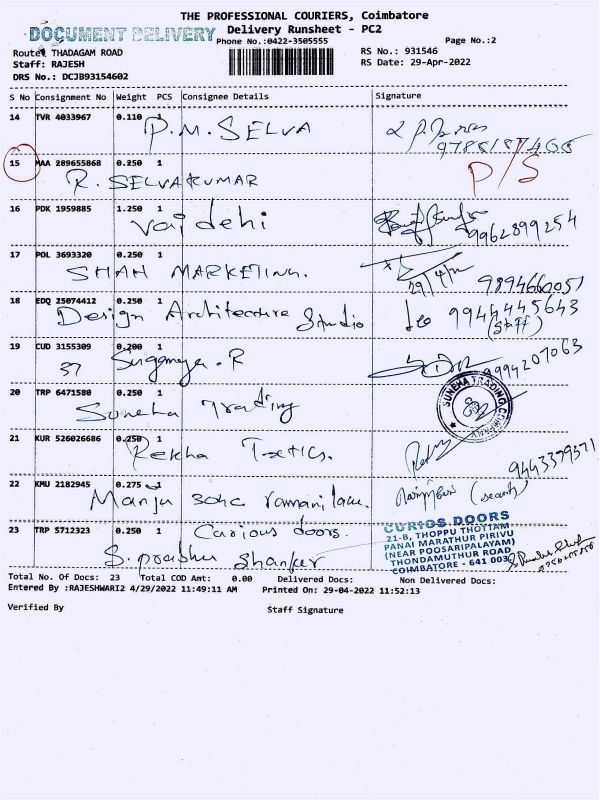 THE PROFESSIONAL COURIERS, Coimbatore
DOCUMENT DELIVERY
Delivery Runsheet - PC2
Phone No.:0422-3505555
Page No.:2
Route: THADAGAM ROAD
RS No.: 931546
Staff: RAJESH
RS Date: 29-Apr-2022
DRS No.: DCJB93154602
S No Consignment No Weight PCS Consignee Details Signature
14 TVR 4033967 0.110 1
P.M. SELVA
15 MAA 289655868 0.250 1
R. SELVAKUMAR P/S
16 PDK 1959885 1.250 1
Vaidehi 9962899254
17 POL 3693320 0.250 1
SHAH MARKETING. 29/4/22 9894660051
18 EDQ 25074412 0.250 1
Design Architecture Studio Leo 9944445643
(Staff)
19 CUD 3155309 0.200 1
37 R 9994207063
20 TRP 6471580 0.250 1
Suneha Trading SUNEHA TRADING COMPANY
21 KUR 526026686 0.250 1
Rekha 9443379371
22 KMU 2182945 0.275 1
Manju
23 TRP 5712323 0.250 1 Curious doors.
S. prabhu Shanker
CURIOS DOORS
21-B, THOPPU THOTTAM
PANAI MARATHUR PIRIVU
(NEAR POOSARIPALAYAM)
THONDAMUTHUR ROAD
COIMBATORE - 641 003
Total No. Of Docs: 23 Total COD Amt: 0.00 Delivered Docs: Non Delivered Docs:
Entered By :RAJESHWARI2 4/29/2022 11:49:11 AM Printed On: 29-04-2022 11:52:13
Verified By Staff Signature